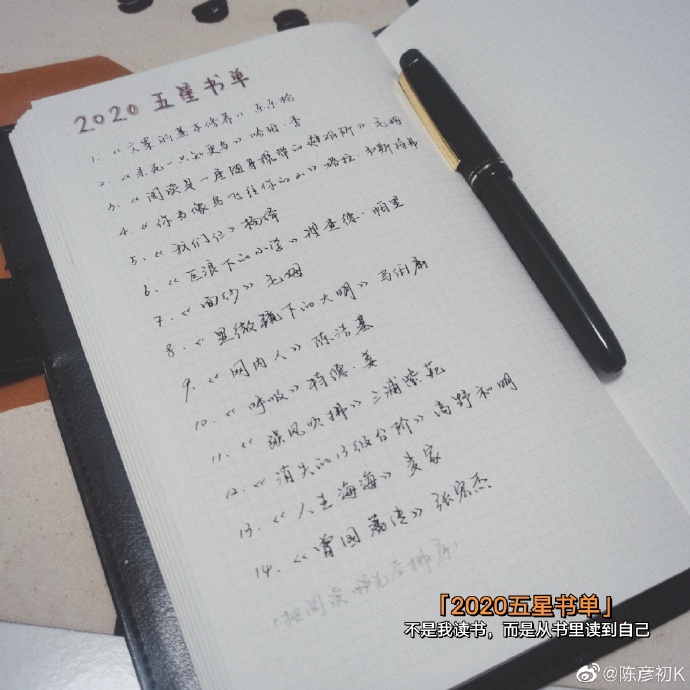 2020 五星书单
1.《文案的基本修养》东东枪
2.《杀死一只知更鸟》哈珀·李
3.《阅读是一座随身携带的避难所》毛姆
4.《你当像鸟飞往你的山》塔拉·韦斯特弗
5.《我们仨》杨绛
6.《巨浪下的小学》理查德·帕里
7.《面纱》毛姆
8.《显微镜下的大明》马伯庸
9.《网内人》陈浩基
10.《呼吸》特德·姜
11.《强风吹拂》三浦紫苑
12.《消失的13级台阶》高野和明
13.《人生海海》麦家
14.《曾国藩传》张宏杰
(按阅读的先后排序)
「2020五星书单」
不是我读书，而是从书里读到自己
@陈彦初K